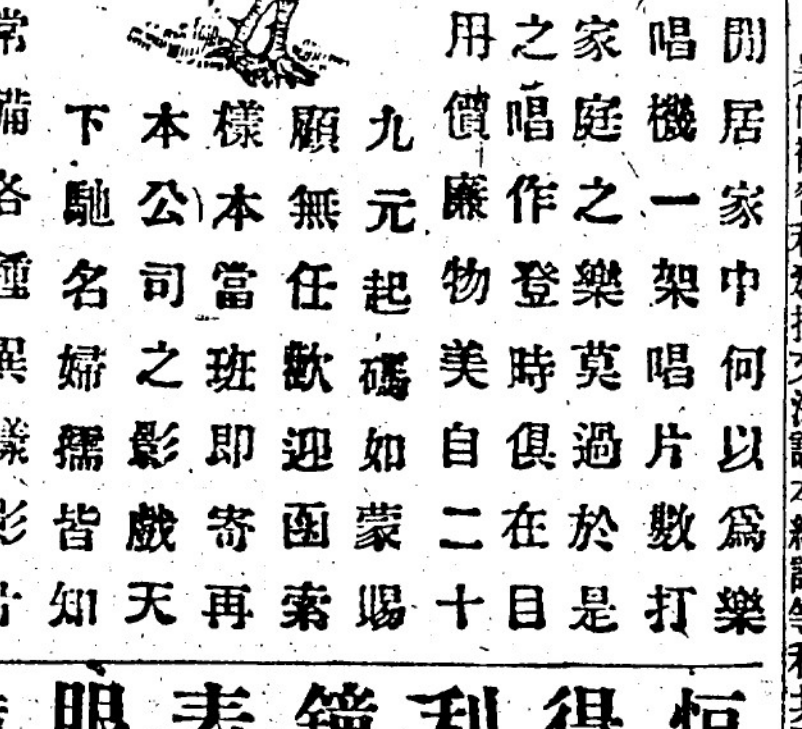 閒居家中何以爲樂
唱機一架唱片數打
家庭之樂莫過於是
之唱作登時俱在目
用價廉物美自二十
九元起碼如蒙賜
顧無任歡迎函索
樣本當班即寄再
本公司之影戲天
下馳名婦孺皆知
常備各種異樣影片
恒得利鐘表眼